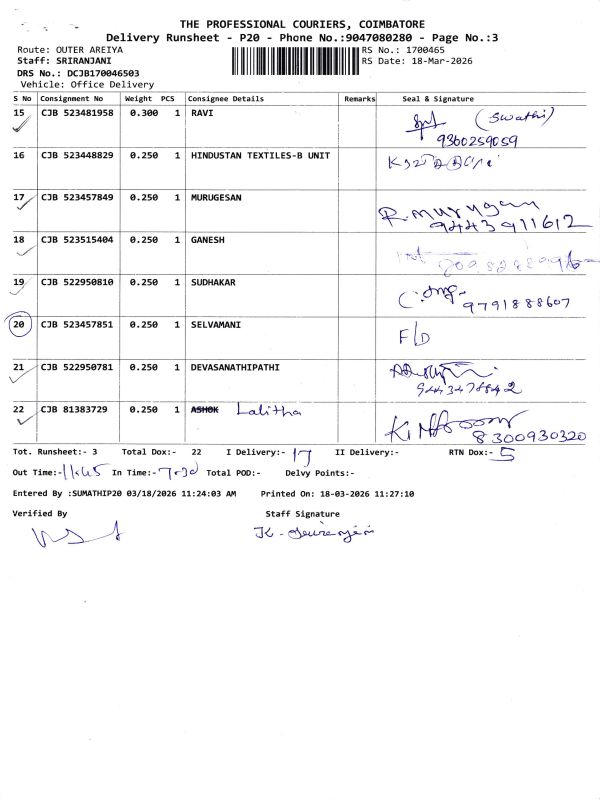 THE PROFESSIONAL COURIERS, COIMBATORE
Delivery Runsheet - P20 - Phone No.:9047080280 - Page No.:3
Route: OUTER AREIYA RS No.: 1700465
Staff: SRIRANJANI RS Date: 18-Mar-2026
DRS No.: DCJB170046503
Vehicle: Office Delivery
S No Consignment No Weight PCS Consignee Details Remarks Seal & Signature
15 CJB 523481958 0.300 1 RAVI (Swathi)
9360259059
16 CJB 523448829 0.250 1 HINDUSTAN TEXTILES-B UNIT
17 CJB 523457849 0.250 1 MURUGESAN R. Murugan
9443911612
18 CJB 523515404 0.250 1 GANESH
19 CJB 522950810 0.250 1 SUDHAKAR
9791888607
20 CJB 523457851 0.250 1 SELVAMANI F/D
21 CJB 522950781 0.250 1 DEVASANATHIPATHI
9443478842
22 CJB 81383729 0.250 1 ASHOK Lalitha
8300930320
Tot. Runsheet:- 3 Total Dox:- 22 I Delivery:- 17 II Delivery:- RTN Dox:- 5
Out Time:- 11.45 In Time:- 7.30 Total POD:- Delvy Points:-
Entered By :SUMATHIP20 03/18/2026 11:24:03 AM Printed On: 18-03-2026 11:27:10
Verified By Staff Signature